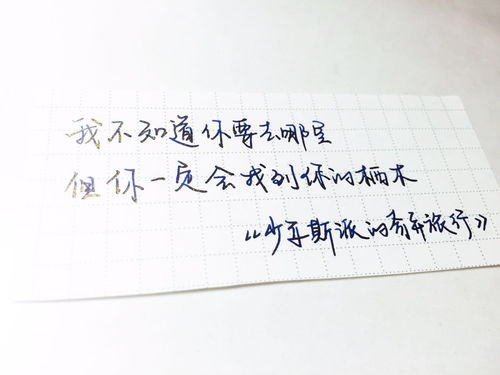 我不知道你要去哪里
但你一定会找到你的栖木
《少年斯派的奇幻旅行》